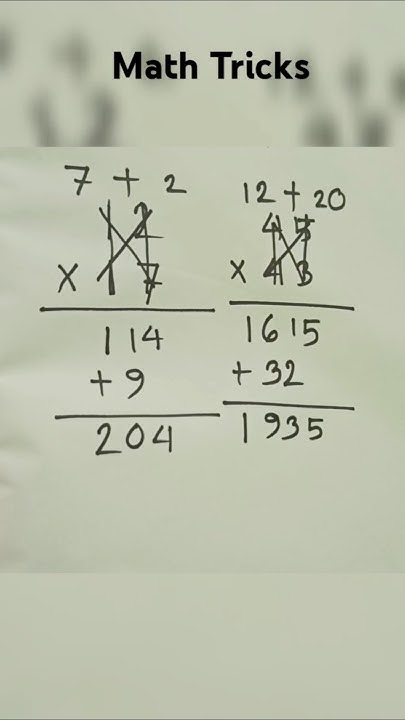 Math Tricks
7 + 2
12
× 17
114
+ 9
204
12 + 20
45
× 43
1615
+ 32
1935